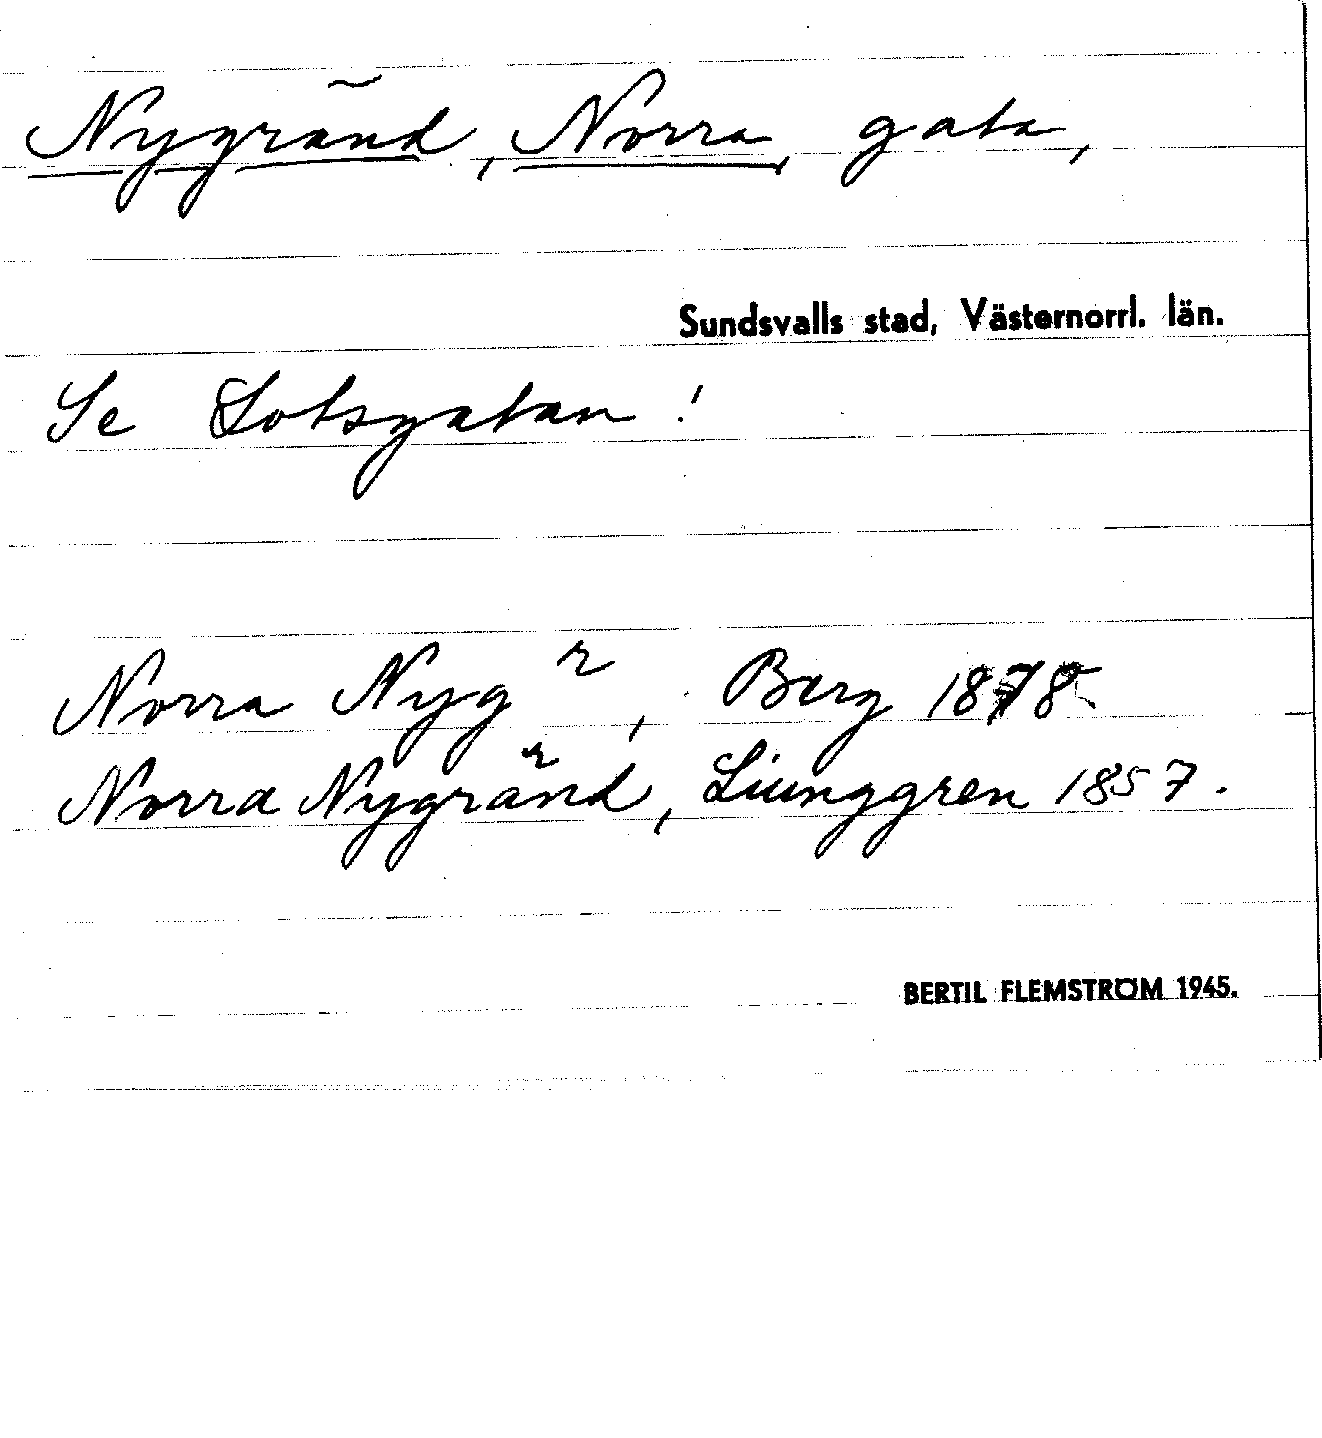 Nygränd, Norra, gata,
Sundsvalls stad, Västernorrl. län.
Se Lotsgatan!
Norra Nyg r, Berg 1878
Norra Nygränd, Liunggren 1857.
BERTIL FLEMSTRÖM 1945.